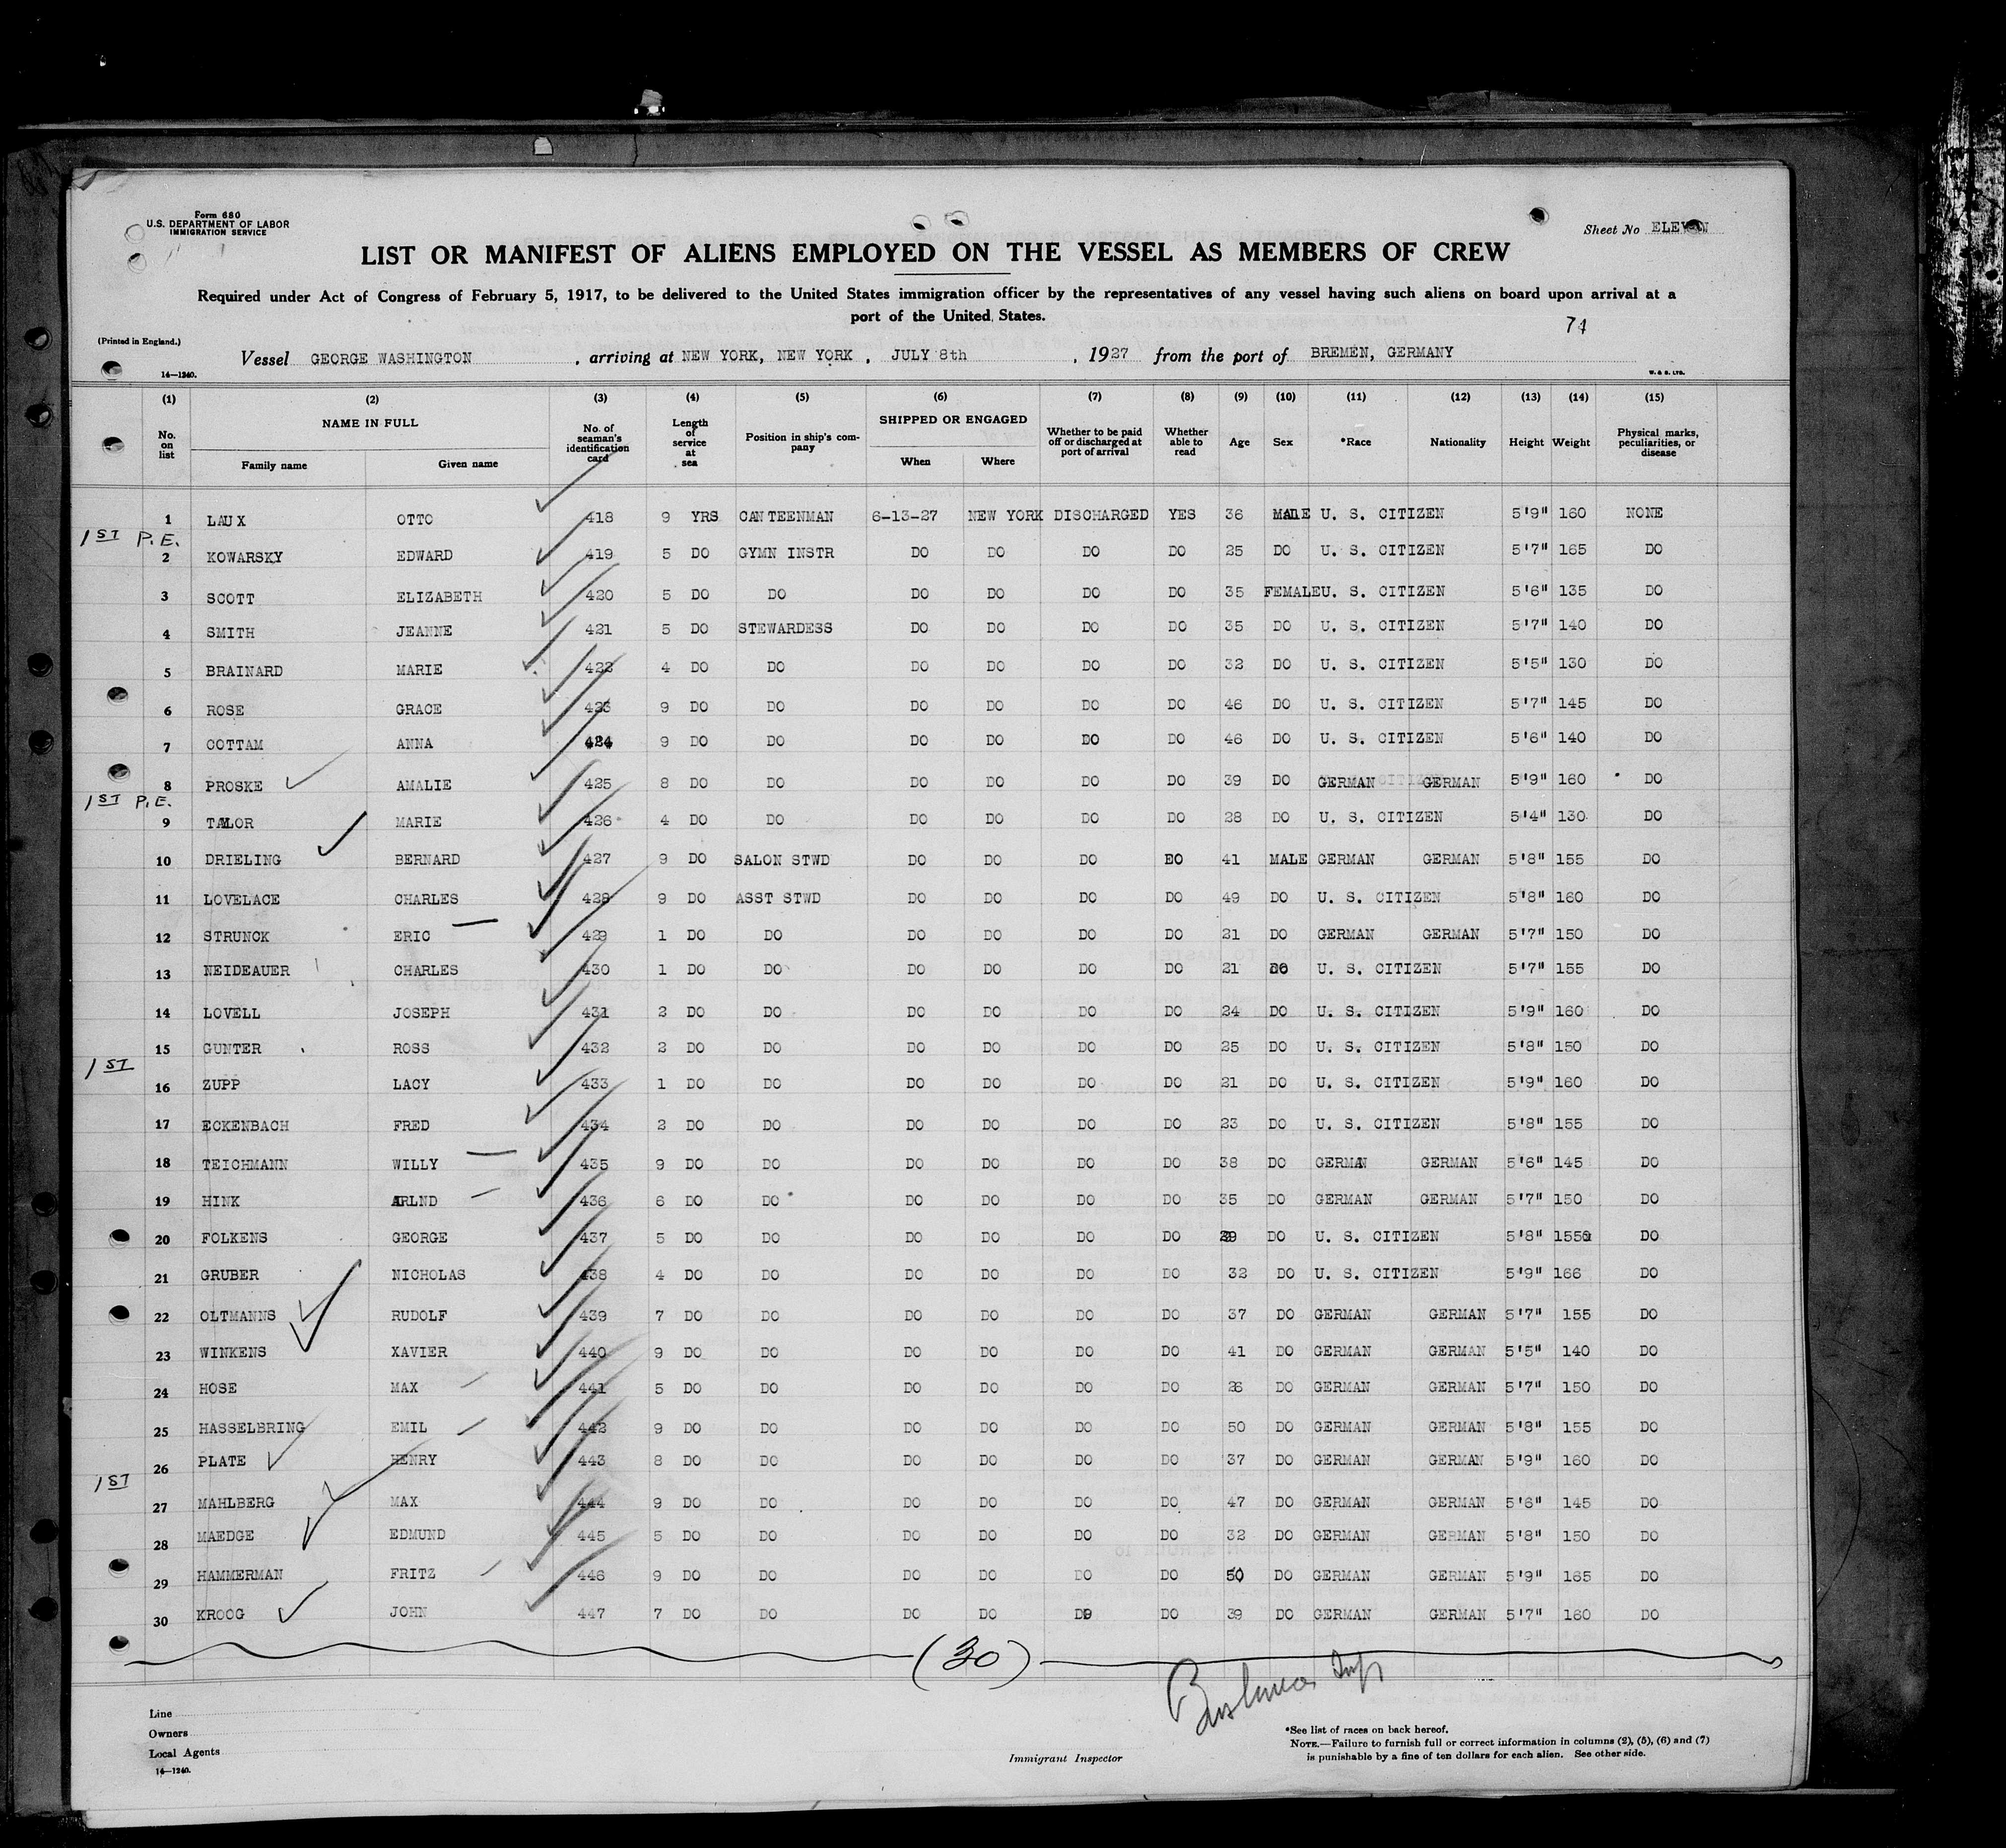 Form 680
U.S. DEPARTMENT OF LABOR
IMMIGRATION SERVICE
Sheet No ELEVEN
LIST OR MANIFEST OF ALIENS EMPLOYED ON THE VESSEL AS MEMBERS OF CREW
Required under Act of Congress of February 5, 1917, to be delivered to the United States immigration officer by the representatives of any vessel having such aliens on board upon arrival at a
port of the United States.
74
(Printed in England.)
Vessel GEORGE WASHINGTON , arriving at NEW YORK, NEW YORK , JULY 8th , 1927 from the port of BREMEN, GERMANY
14—1240.
W. & S. LTD.
(1) (2) (3) (4) (5) (6) (7) (8) (9) (10) (11) (12) (13) (14) (15)
No. on list NAME IN FULL Family name Given name No. of seaman's identification card Length of service at sea Position in ship's company SHIPPED OR ENGAGED When Where Whether to be paid off or discharged at port of arrival Whether able to read Age Sex *Race Nationality Height Weight Physical marks, peculiarities, or disease
1 LAUX OTTO 418 9 YRS CANTEENMAN 6-13-27 NEW YORK DISCHARGED YES 36 MALE U. S. CITIZEN 5'9" 160 NONE
1ST P.E.
2 KOWARSKY EDWARD 419 5 DO GYMN INSTR DO DO DO DO 25 DO U. S. CITIZEN 5'7" 165 DO
3 SCOTT ELIZABETH 420 5 DO DO DO DO DO DO 35 FEMALE U. S. CITIZEN 5'6" 135 DO
4 SMITH JEANNE 421 5 DO STEWARDESS DO DO DO DO 35 DO U. S. CITIZEN 5'7" 140 DO
5 BRAINARD MARIE 422 4 DO DO DO DO DO DO 32 DO U. S. CITIZEN 5'5" 130 DO
6 ROSE GRACE 423 9 DO DO DO DO DO DO 46 DO U. S. CITIZEN 5'7" 145 DO
7 COTTAM ANNA 424 9 DO DO DO DO DO DO 46 DO U. S. CITIZEN 5'6" 140 DO
8 PROSKE AMALIE 425 8 DO DO DO DO DO DO 39 DO GERMAN GERMAN 5'9" 160 DO
1ST P.E.
9 TAYLOR MARIE 426 4 DO DO DO DO DO DO 28 DO U. S. CITIZEN 5'4" 130 DO
10 DRIELING BERNARD 427 9 DO SALON STWD DO DO DO EO 41 MALE GERMAN GERMAN 5'8" 155 DO
11 LOVELACE CHARLES 428 9 DO ASST STWD DO DO DO DO 49 DO U. S. CITIZEN 5'8" 160 DO
12 STRUNCK ERIC 429 1 DO DO DO DO DO DO 21 DO GERMAN GERMAN 5'7" 150 DO
13 NEIDEAUER CHARLES 430 1 DO DO DO DO DO DO 21 DO U. S. CITIZEN 5'7" 155 DO
14 LOVELL JOSEPH 431 2 DO DO DO DO DO DO 24 DO U. S. CITIZEN 5'9" 160 DO
15 GUNTER ROSS 432 2 DO DO DO DO DO DO 25 DO U. S. CITIZEN 5'8" 150 DO
1ST
16 ZUPP LACY 433 1 DO DO DO DO DO DO 21 DO U. S. CITIZEN 5'9" 160 DO
17 ECKENBACH FRED 434 2 DO DO DO DO DO DO 23 DO U. S. CITIZEN 5'8" 155 DO
18 TEICHMANN WILLY 435 9 DO DO DO DO DO DO 38 DO GERMAN GERMAN 5'6" 145 DO
19 HINK ARLND 436 6 DO DO DO DO DO DO 35 DO GERMAN GERMAN 5'7" 150 DO
20 FOLKENS GEORGE 437 5 DO DO DO DO DO DO 29 DO U. S. CITIZEN 5'8" 155 DO
21 GRUBER NICHOLAS 438 4 DO DO DO DO DO DO 32 DO U. S. CITIZEN 5'9" 166 DO
22 OLTMANNS RUDOLF 439 7 DO DO DO DO DO DO 37 DO GERMAN GERMAN 5'7" 155 DO
23 WINKENS XAVIER 440 9 DO DO DO DO DO DO 41 DO GERMAN GERMAN 5'5" 140 DO
24 HOSE MAX 441 5 DO DO DO DO DO DO 26 DO GERMAN GERMAN 5'7" 150 DO
25 HASSELBRING EMIL 442 9 DO DO DO DO DO DO 50 DO GERMAN GERMAN 5'8" 155 DO
26 PLATE HENRY 443 8 DO DO DO DO DO DO 37 DO GERMAN GERMAN 5'9" 160 DO
1ST
27 MAHLBERG MAX 444 9 DO DO DO DO DO DO 47 DO GERMAN GERMAN 5'6" 145 DO
28 MAEDGE EDMUND 445 5 DO DO DO DO DO DO 32 DO GERMAN GERMAN 5'8" 150 DO
29 HAMMERMAN FRITZ 446 9 DO DO DO DO DO DO 50 DO GERMAN GERMAN 5'9" 165 DO
30 KROOG JOHN 447 7 DO DO DO DO DO DO 39 DO GERMAN GERMAN 5'7" 160 DO
(30)
Line
Owners
Local Agents
14—1240.
Immigrant Inspector
*See list of races on back hereof.
NOTE.—Failure to furnish full or correct information in columns (2), (5), (6) and (7)
is punishable by a fine of ten dollars for each alien. See other side.